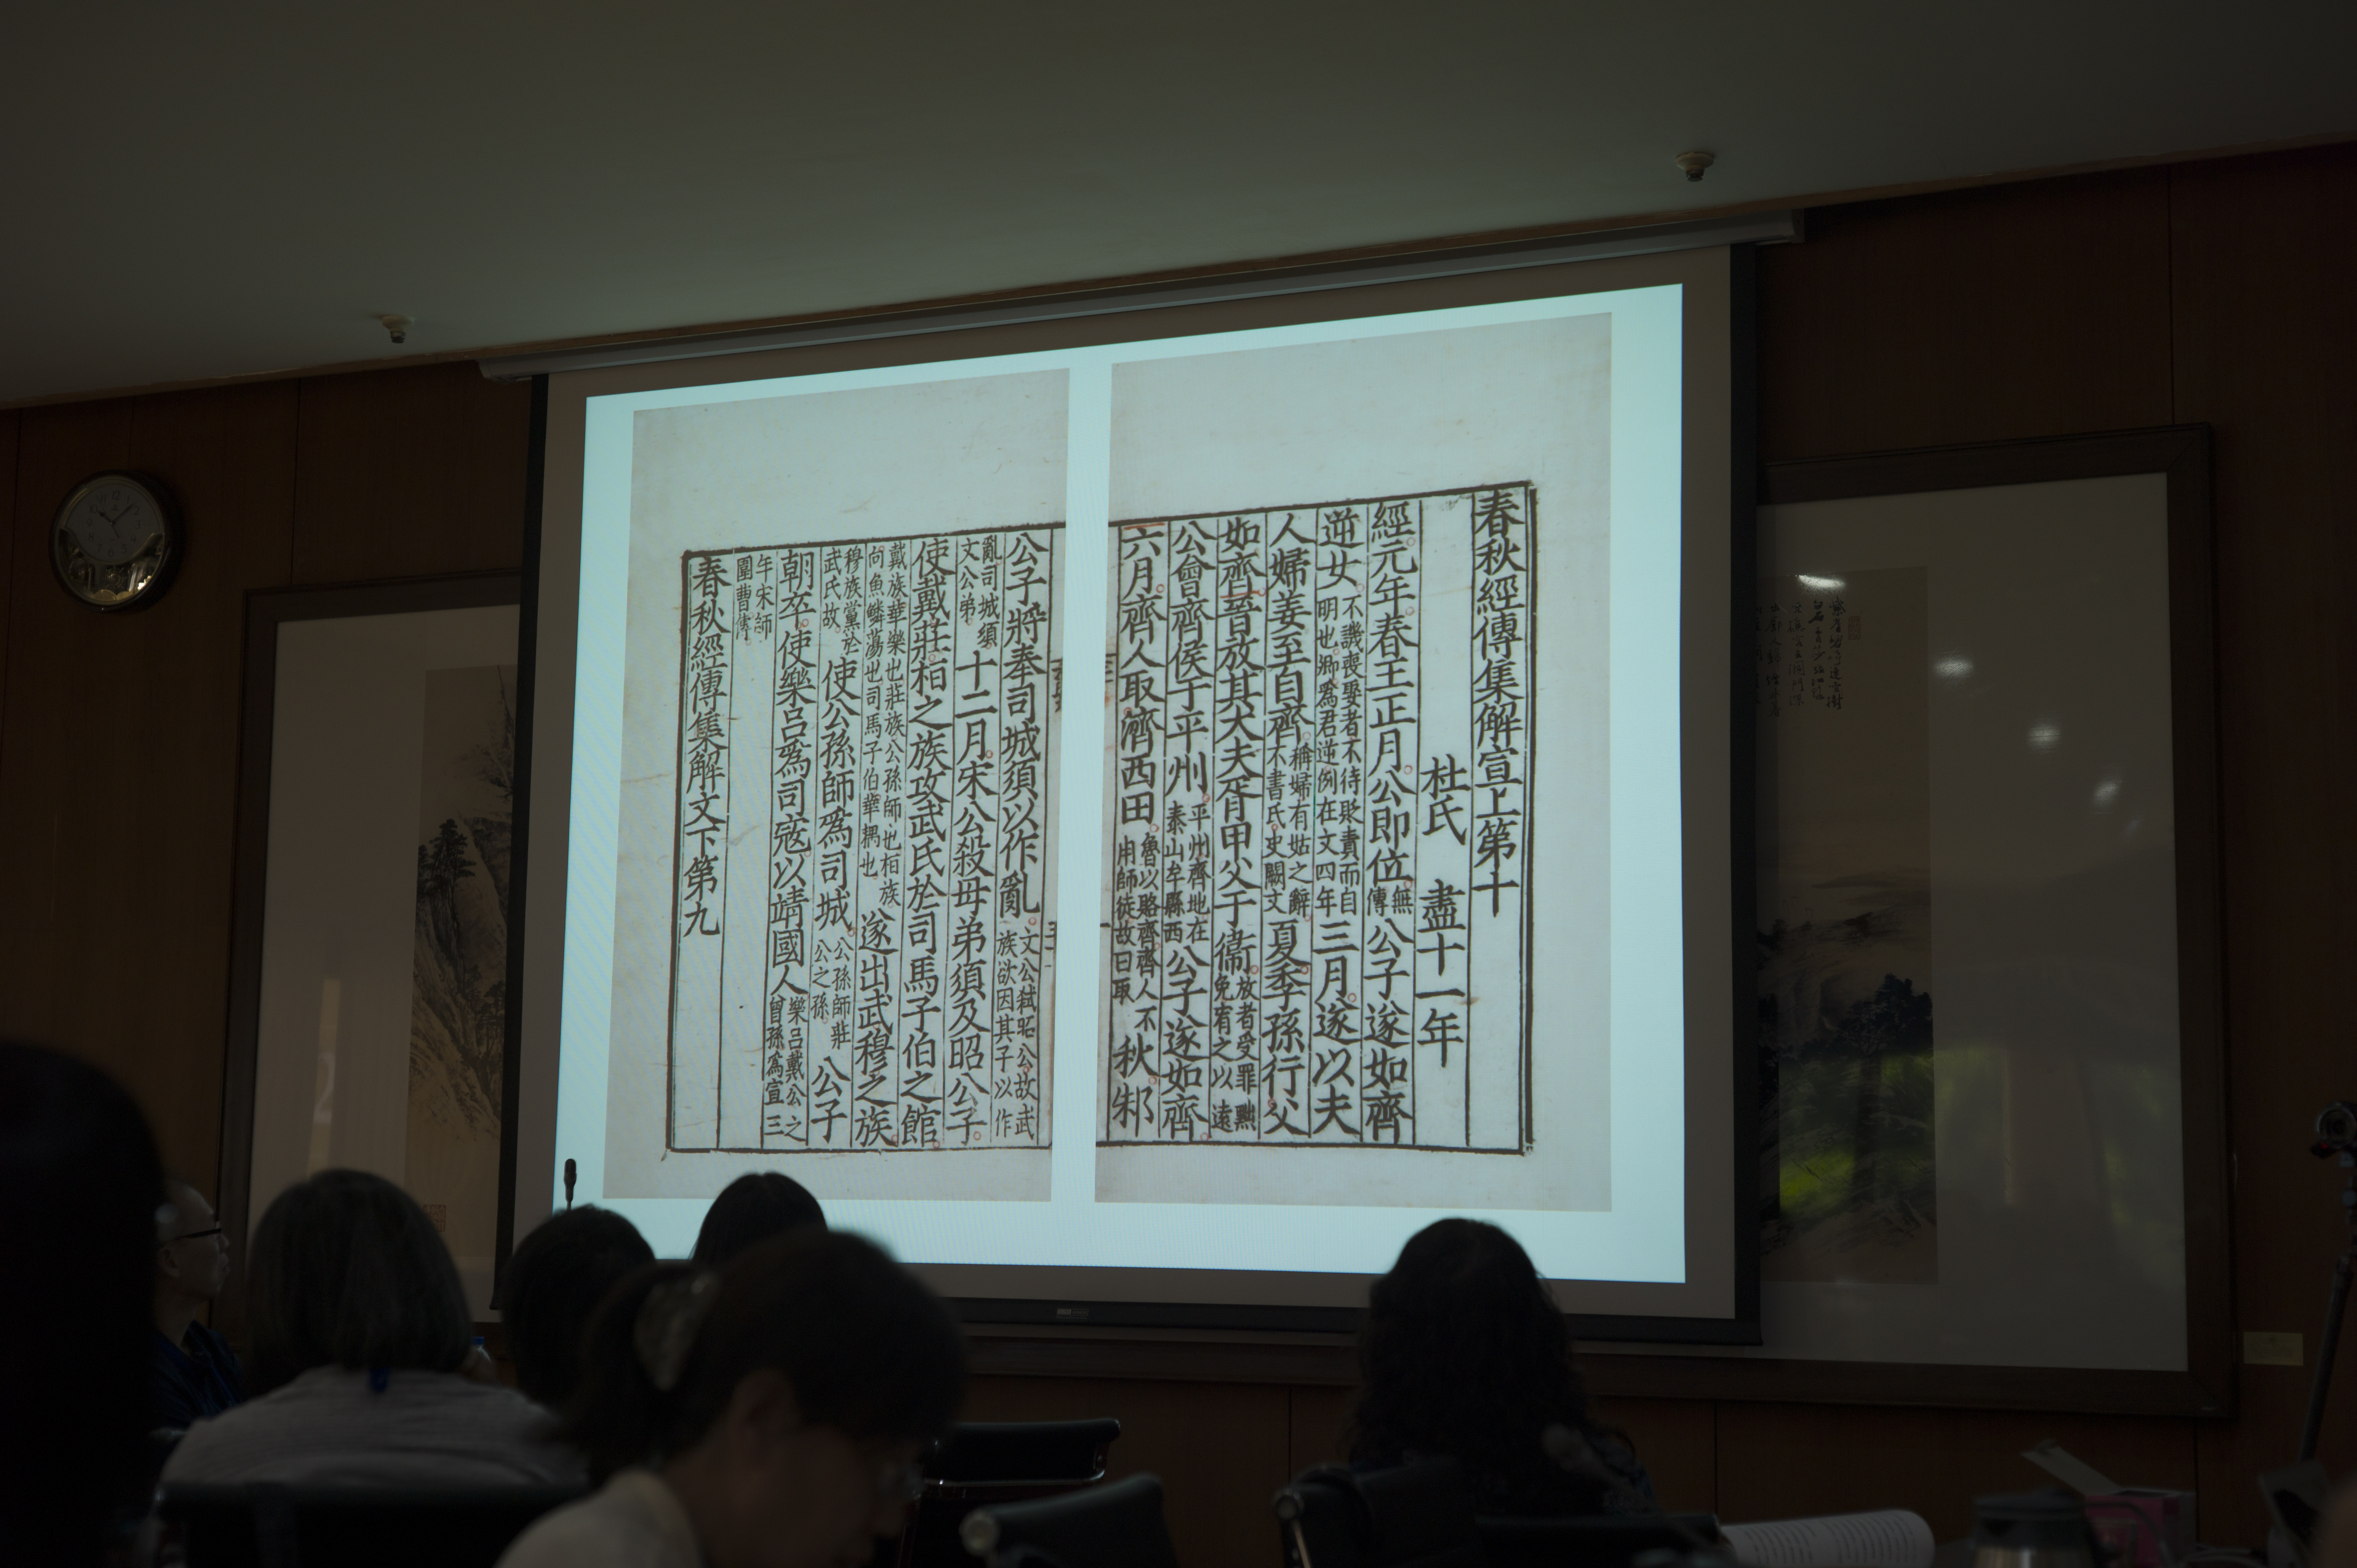 春秋經傳集解宣上第十
杜氏　盡十一年
經元年春王正月公即位無傳公子遂如齊
逆女不譏喪娶者不待貶責而自明也卿爲君逆例在文四年三月遂以夫
人婦姜至自齊稱婦有姑之辭不書氏史闕文夏季孫行父
如齊晉放其大夫胥甲父于衞放者受罪黜免宥之以遠
公會齊侯于平州平州齊地在泰山牟縣西公子遂如齊
六月齊人取濟西田魯以賂齊齊人不用師徒故曰取秋邾
公子將奉司城須以作亂文公弒昭公故武族欲因其子以作
亂司城須文公弟十二月宋公殺母弟須及昭公子
使戴莊桓之族攻武氏於司馬子伯之館
戴族華樂也莊族公孫師也桓族向魚鱗蕩也司馬子伯華耦也遂出武穆之族
穆族黨於武氏故使公孫師爲司城公孫師莊公之孫公子
朝卒使樂呂爲司寇以靖國人樂呂戴公之曾孫爲宣三
年宋師圍曹傳
春秋經傳集解文下第九